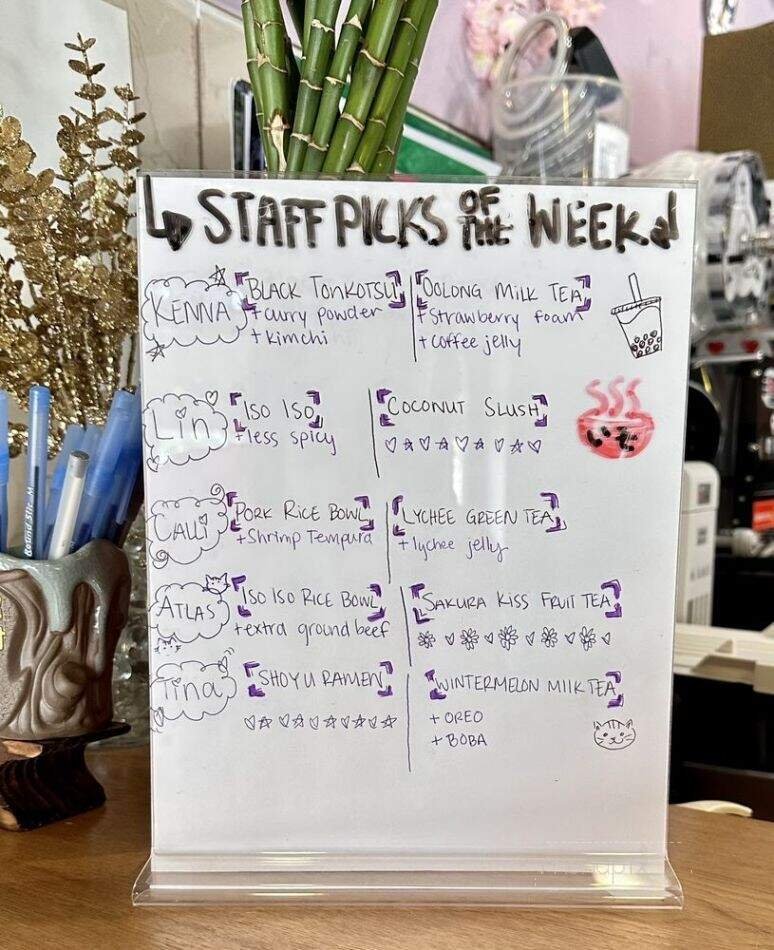 STAFF PICKS OF THE WEEK
KENNA
BLACK TONKOTSU
+ curry powder
+ kimchi
OOLONG MILK TEA
+ strawberry foam
+ coffee jelly
Lin
ISO ISO
+ less spicy
COCONUT SLUSH
CALLI
PORK RICE BOWL
+ Shrimp Tempura
LYCHEE GREEN TEA
+ lychee jelly
ATLAS
ISO ISO RICE BOWL
+ extra ground beef
SAKURA KISS FRUIT TEA
Tina
SHOYU RAMEN
WINTERMELON MILK TEA
+ OREO
+ BOBA